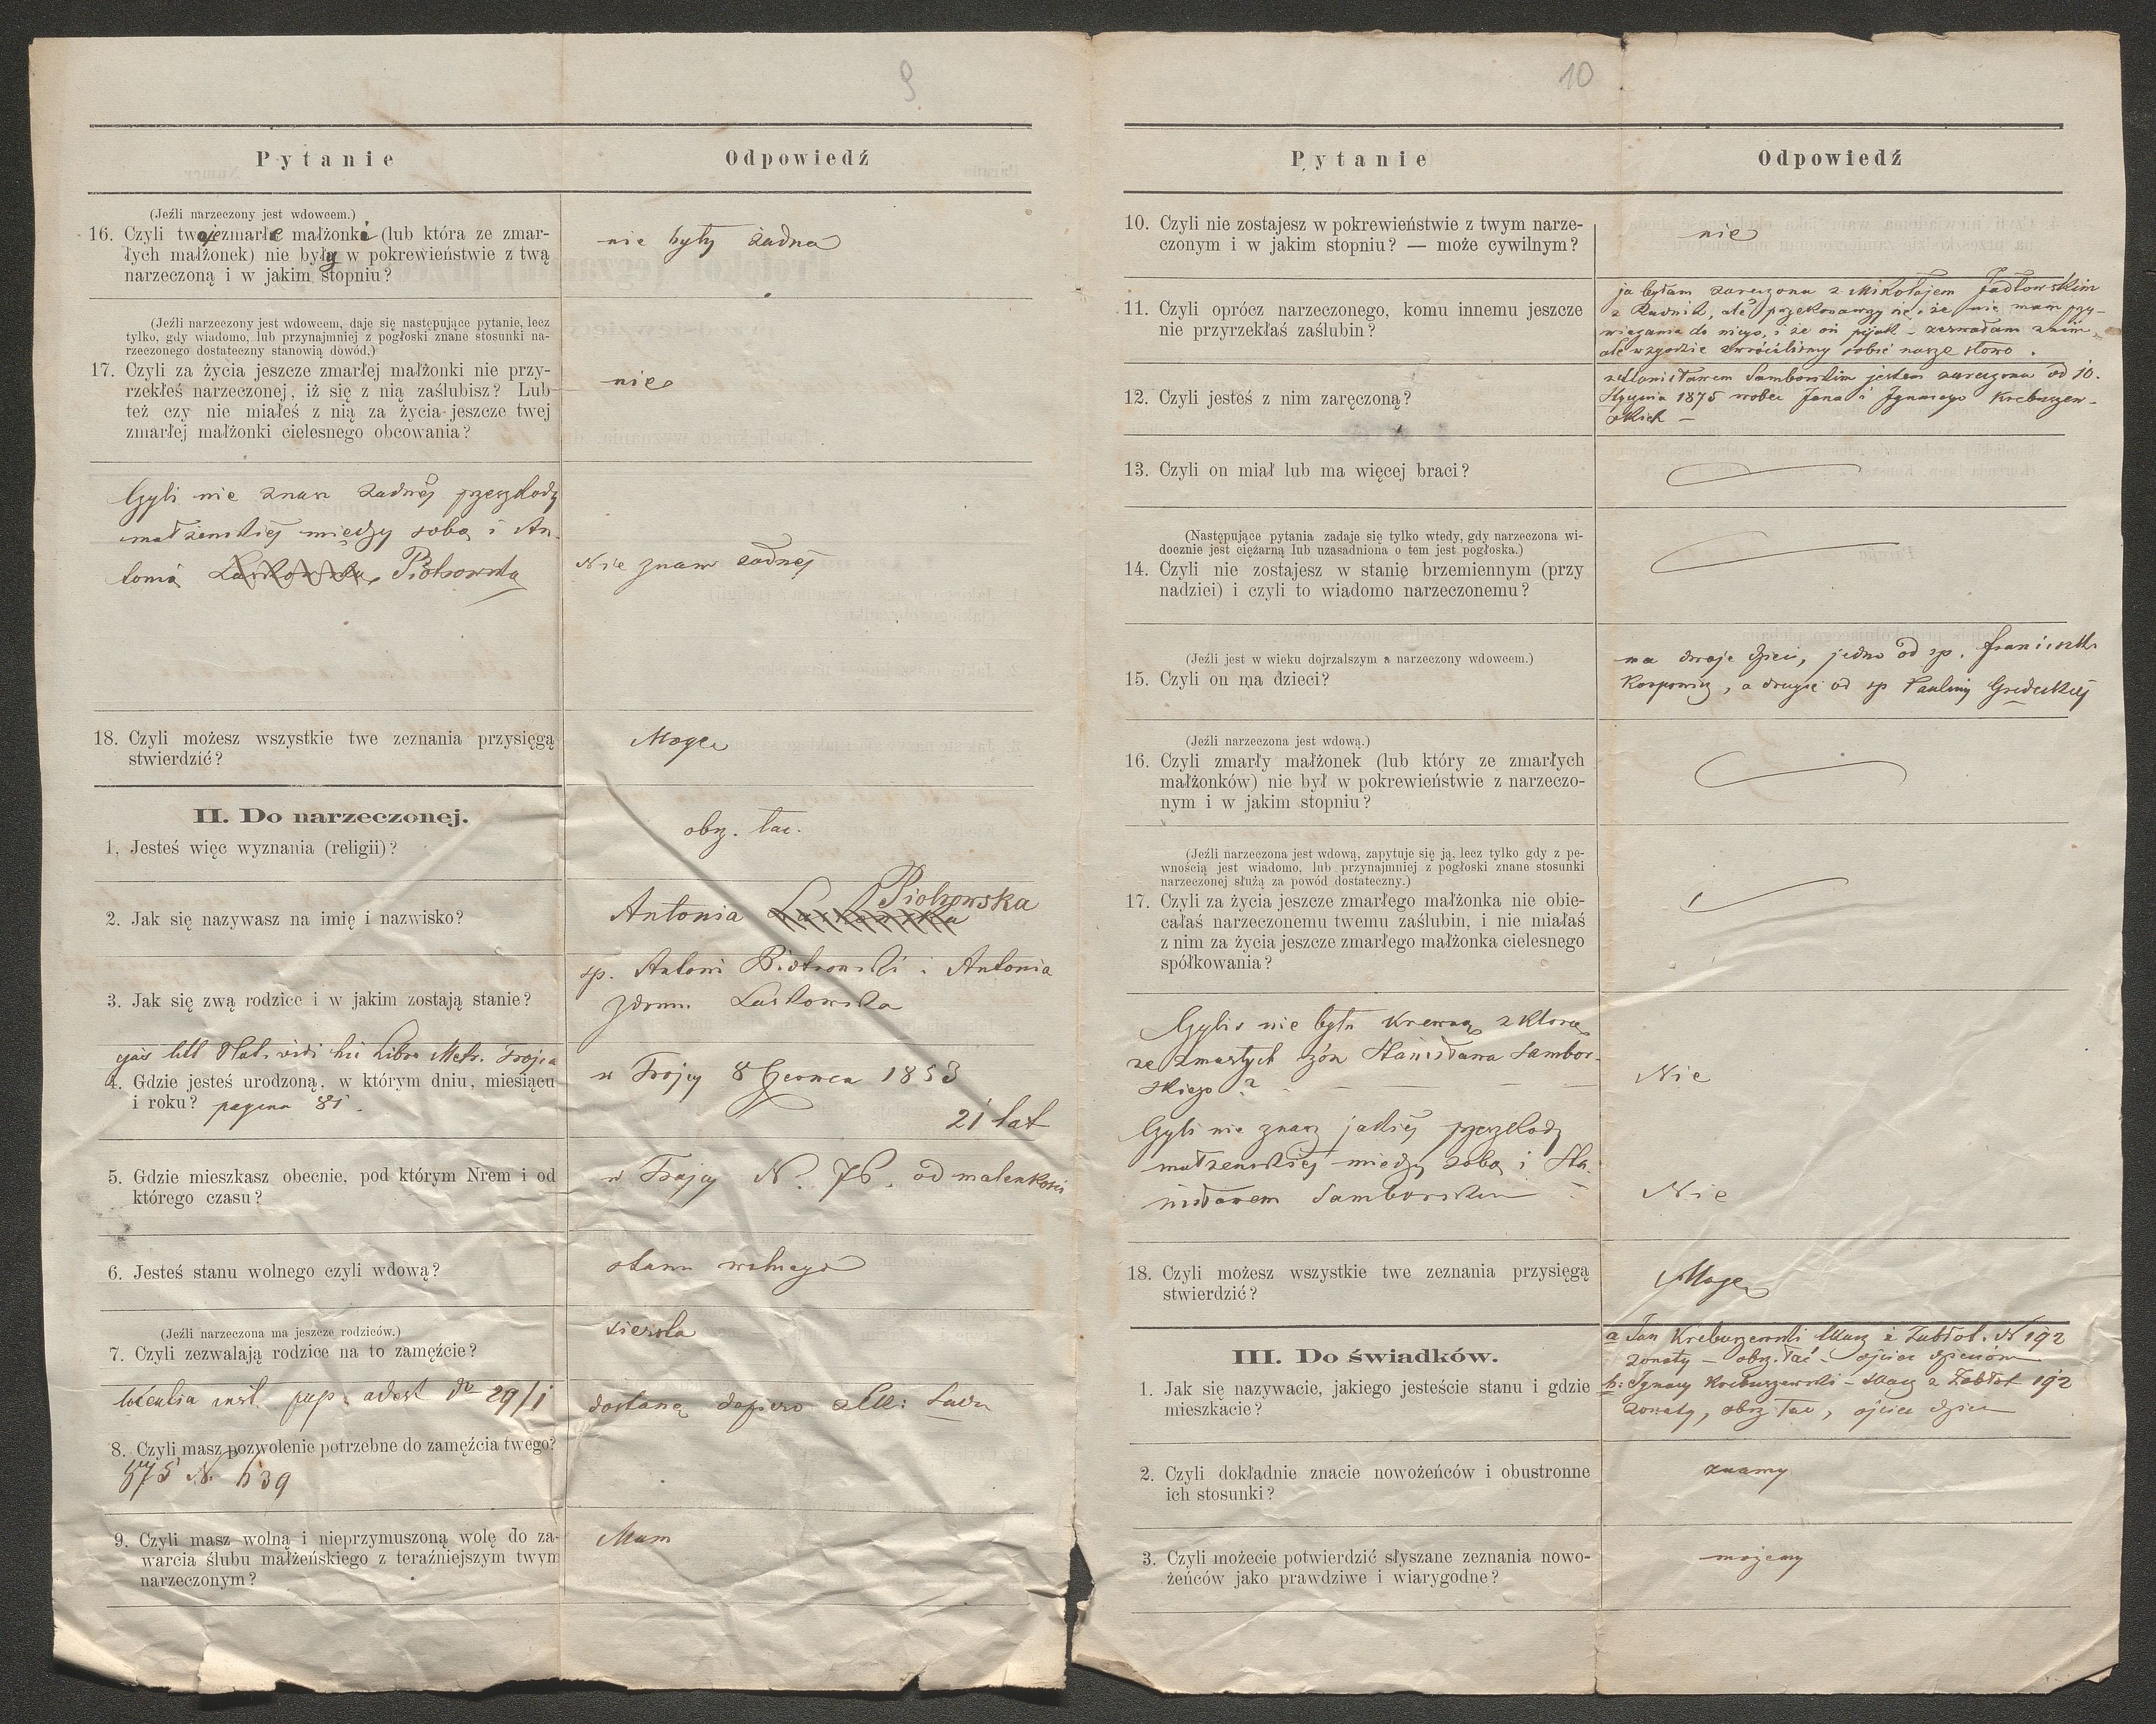 9
Pytanie
Odpowiedź
(Jeźli narzeczony jest wdowcem.)
16. Czyli twoje zmarłe małżonki (lub która ze zmar-
łych małżonek) nie były w pokrewieństwie z twą
narzeczoną i w jakim stopniu?
nie były żadna
(Jeźli narzeczony jest wdowcem, daje się następujące pytanie, lecz
tylko, gdy wiadomo, lub przynajmniej z pogłoski znane stosunki na-
rzeczonego dostateczny stanowią dowód.)
17. Czyli za życia jeszcze zmarłej małżonki nie przy-
rzekłeś narzeczonej, iż się z nią zaślubisz? Lub
też czy nie miałeś z nią za życia jeszcze twej
zmarłej małżonki cielesnego obcowania?
nie
Czyli nie znasz żadnej przeszkody
małżeńskiej między sobą i An-
tonią Piotrowską
Nie znam żadnej
18. Czyli możesz wszystkie twe zeznania przysięgą
stwierdzić?
Mogę
II. Do narzeczonej.
1. Jesteś więc wyznania (religii)?
obrz. łac.
2. Jak się nazywasz na imię i nazwisko?
Antonia Laskowska Piotrowska
3. Jak się zwą rodzice i w jakim zostają stanie?
sp. Antoni Piotrowski i Antonia
Laskowska
Libro Metr. Trojca
4. Gdzie jesteś urodzoną, w którym dniu, miesiącu
i roku? pagina 81.
w Trojcy 8 Czerwca 1853
21 lat
5. Gdzie mieszkasz obecnie, pod którym Nrem i od
którego czasu?
w Trojcy N. 76. od maleńkości
6. Jesteś stanu wolnego czyli wdową?
stanu wolnego
(Jeźli narzeczona ma jeszcze rodziców.)
7. Czyli zezwalają rodzice na to zamęźcie?
sierota
pup. adest dto 29/1
8. Czyli masz pozwolenie potrzebne do zamęźcia twego?
875 N. 639
dostanę dopiero
9. Czyli masz wolną i nieprzymuszoną wolę do za-
warcia ślubu małżeńskiego z teraźniejszym twym
narzeczonym?
Mam
10
Pytanie
Odpowiedź
10. Czyli nie zostajesz w pokrewieństwie z twym narze-
czonym i w jakim stopniu? — może cywilnym?
nie
11. Czyli oprócz narzeczonego, komu innemu jeszcze
nie przyrzekłaś zaślubin?
ja byłam zaręczona z Mikołajem Jadłowskim
z Rudnik, ale przekonawszy się, że nie mam przy-
wiązania do niego, i że on pijak – zerwałam z nim,
ale w zgodzie zwróciliśmy sobie nasze słowo.
12. Czyli jesteś z nim zaręczoną?
z Stanisławem Samborskim jestem zaręczona od 10.
Stycznia 1875 wobec Jana i Ignacego Krebuszew-
skich –
13. Czyli on miał lub ma więcej braci?
(Następujące pytania zadaje się tylko wtedy, gdy narzeczona wi-
docznie jest ciężarną lub uzasadniona o tem jest pogłoska.)
14. Czyli nie zostajesz w stanie brzemiennym (przy
nadziei) i czyli to wiadomo narzeczonemu?
(Jeźli jest w wieku dojrzalszym a narzeczony wdowcem.)
15. Czyli on ma dzieci?
ma dwoje dzieci, jedno od sp. Franciszki
Karpowicz, a drugie od sp Pauliny Gródeckiej
(Jeźli narzeczona jest wdową.)
16. Czyli zmarły małżonek (lub który ze zmarłych
małżonków) nie był w pokrewieństwie z narzeczo-
nym i w jakim stopniu?
(Jeźli narzeczona jest wdową, zapytuje się ją, lecz tylko gdy z pe-
wnością jest wiadomo, lub przynajmniej z pogłoski znane stosunki
narzeczonej służą za powód dostateczny.)
17. Czyli za życia jeszcze zmarłego małżonka nie obie-
całaś narzeczonemu twemu zaślubin, i nie miałaś
z nim za życia jeszcze zmarłego małżonka cielesnego
spółkowania?
Czyliś nie była krewną z którą
ze zmarłych żon Stanisława Sambor-
skiego?
Nie
Czyli nie znasz jakiej przeszkody
małżenskiej między sobą i Sta-
nisławem Samborskim
Nie
18. Czyli możesz wszystkie twe zeznania przysięgą
stwierdzić?
Mogę
III. Do świadków.
1. Jak się nazywacie, jakiego jesteście stanu i gdzie
mieszkacie?
a Jan Krebuszewski z Zabłot. N 192
żonaty – obrz. łac – ojciec dzieciom
b: Ignacy Krebuszewski – z Zabłot 192
żonaty, obrz łac, ojciec dzieci
2. Czyli dokładnie znacie nowożeńców i obustronne
ich stosunki?
znamy
3. Czyli możecie potwierdzić słyszane zeznania nowo-
żeńców jako prawdziwe i wiarygodne?
możemy